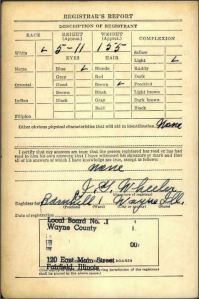 REGISTRAR'S REPORT
DESCRIPTION OF REGISTRANT
RACE HEIGHT (Approx.) WEIGHT (Approx.) COMPLEXION
5-11 155
White Sallow
EYES HAIR Light
Negro Blue Blonde Ruddy
Gray Red Dark
Oriental Hazel Brown Freckled
Brown Black Light brown
Indian Black Gray Dark brown
Bald Black
Filipino
Other obvious physical characteristics that will aid in identification None
I certify that my answers are true; that the person registered has read or has had
read to him his own answers; that I have witnessed his signature or mark and that
all of his answers of which I have knowledge are true, except as follows:
none
Wheeler
Registrar for Barnhill 1 Wayne Ill.
Date of registration
Local Board No. 1
Wayne County
120 East Main Street
Fairfield, Illinois